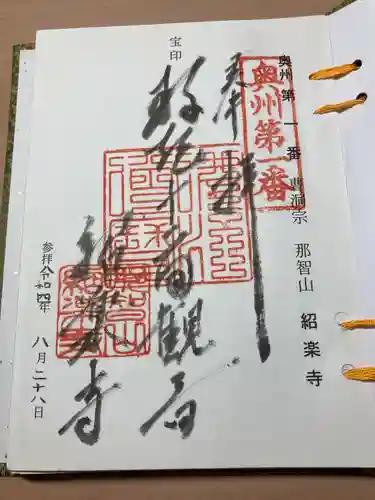 奥州第一番 曹洞宗 那智山 紹楽寺
奥州第一番
奉拝
十一面観音
紹楽寺
宝印
参拝 令和四年 八月二十八日